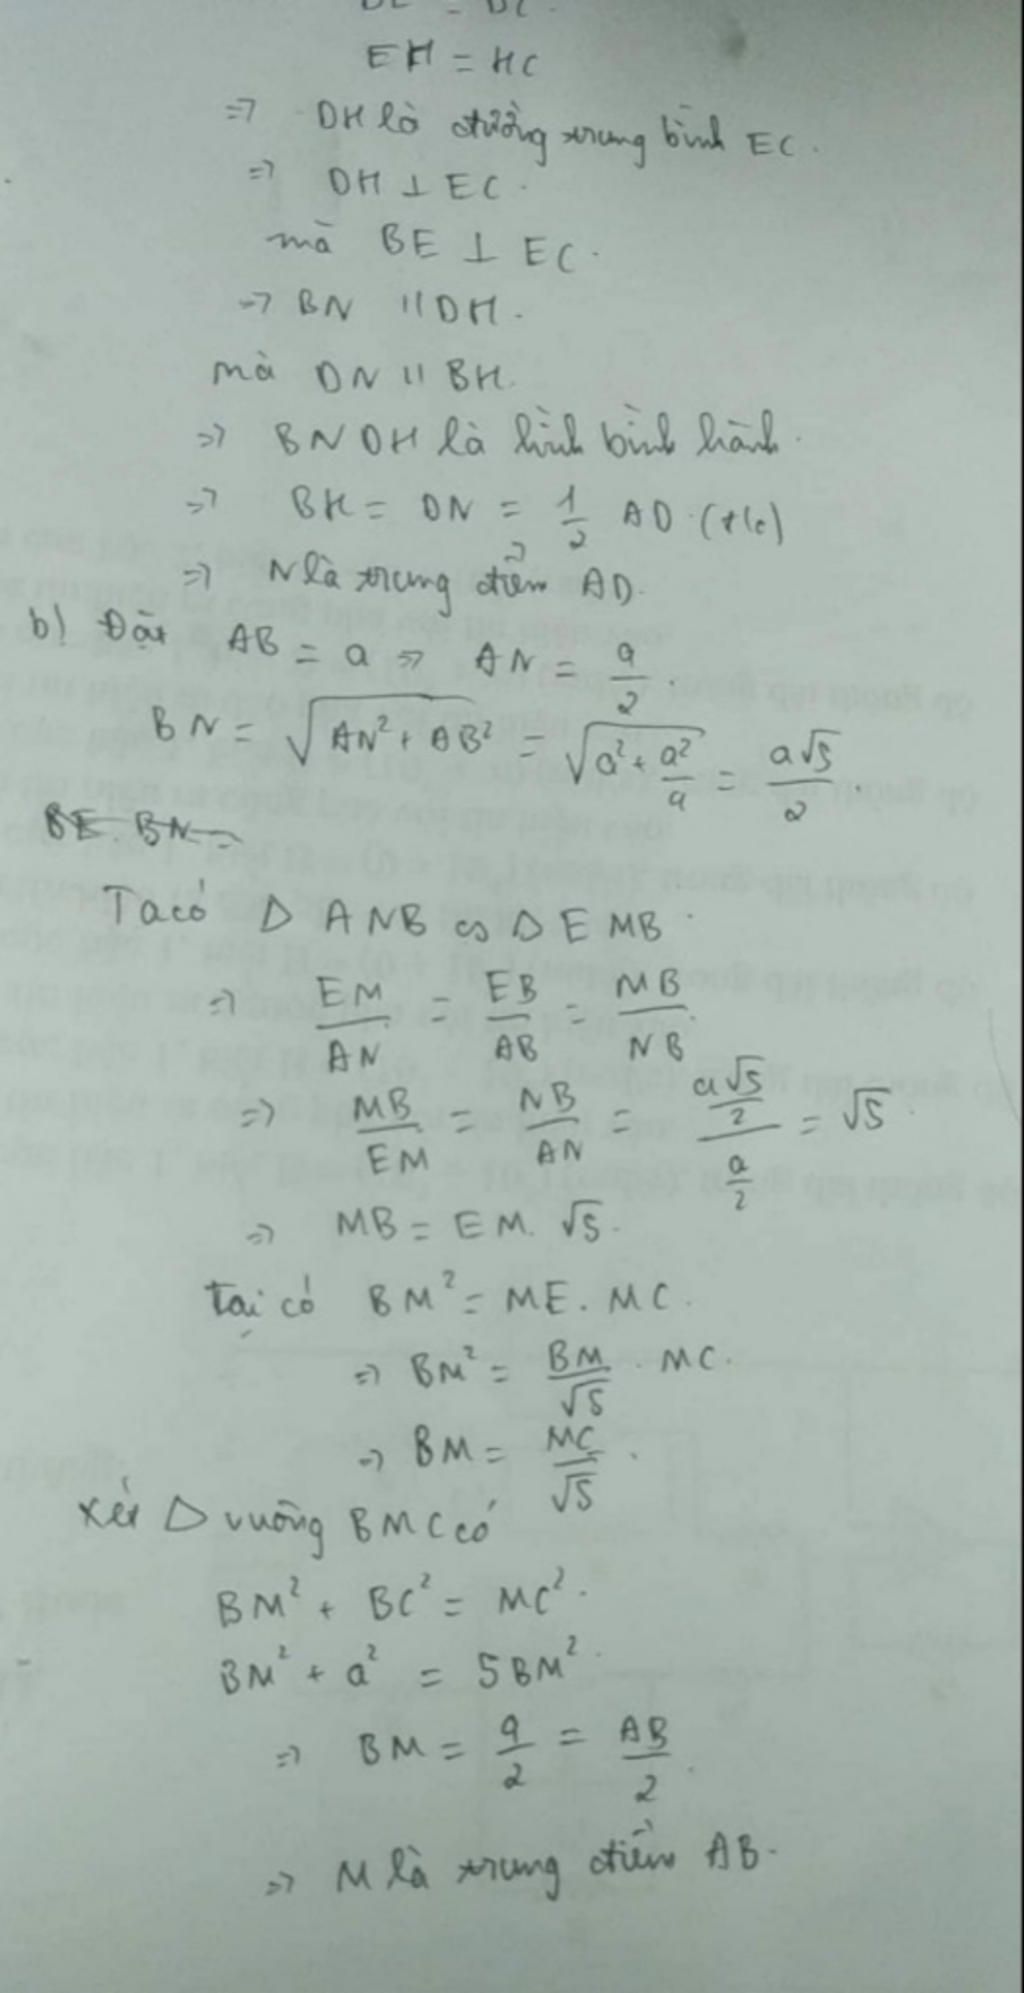 EH = HC
=> DH là đường trung bình EC.
=> DH ⊥ EC.
mà BE ⊥ EC.
=> BN // DH.
mà DN // BH.
=> BNDH là hình bình hành.
=> BH = DN = 1/2 AD (t/c)
=> N là trung điểm AD.
b) Đặt AB = a => AN = a/2.
BN = √(AN² + AB²) = √(a² + a²/4) = a√5/2.
Ta có Δ ANB ∽ Δ EMB.
=> EM/AN = EB/AB = MB/NB.
=> MB/EM = NB/AN = (a√5/2)/(a/2) = √5
=> MB = EM.√5.
Lại có BM² = ME.MC.
=> BM² = BM/√5 . MC.
=> BM = MC/√5.
Xét Δ vuông BMC có
BM² + BC² = MC².
BM² + a² = 5BM².
=> BM = a/2 = AB/2.
=> M là trung điểm AB.